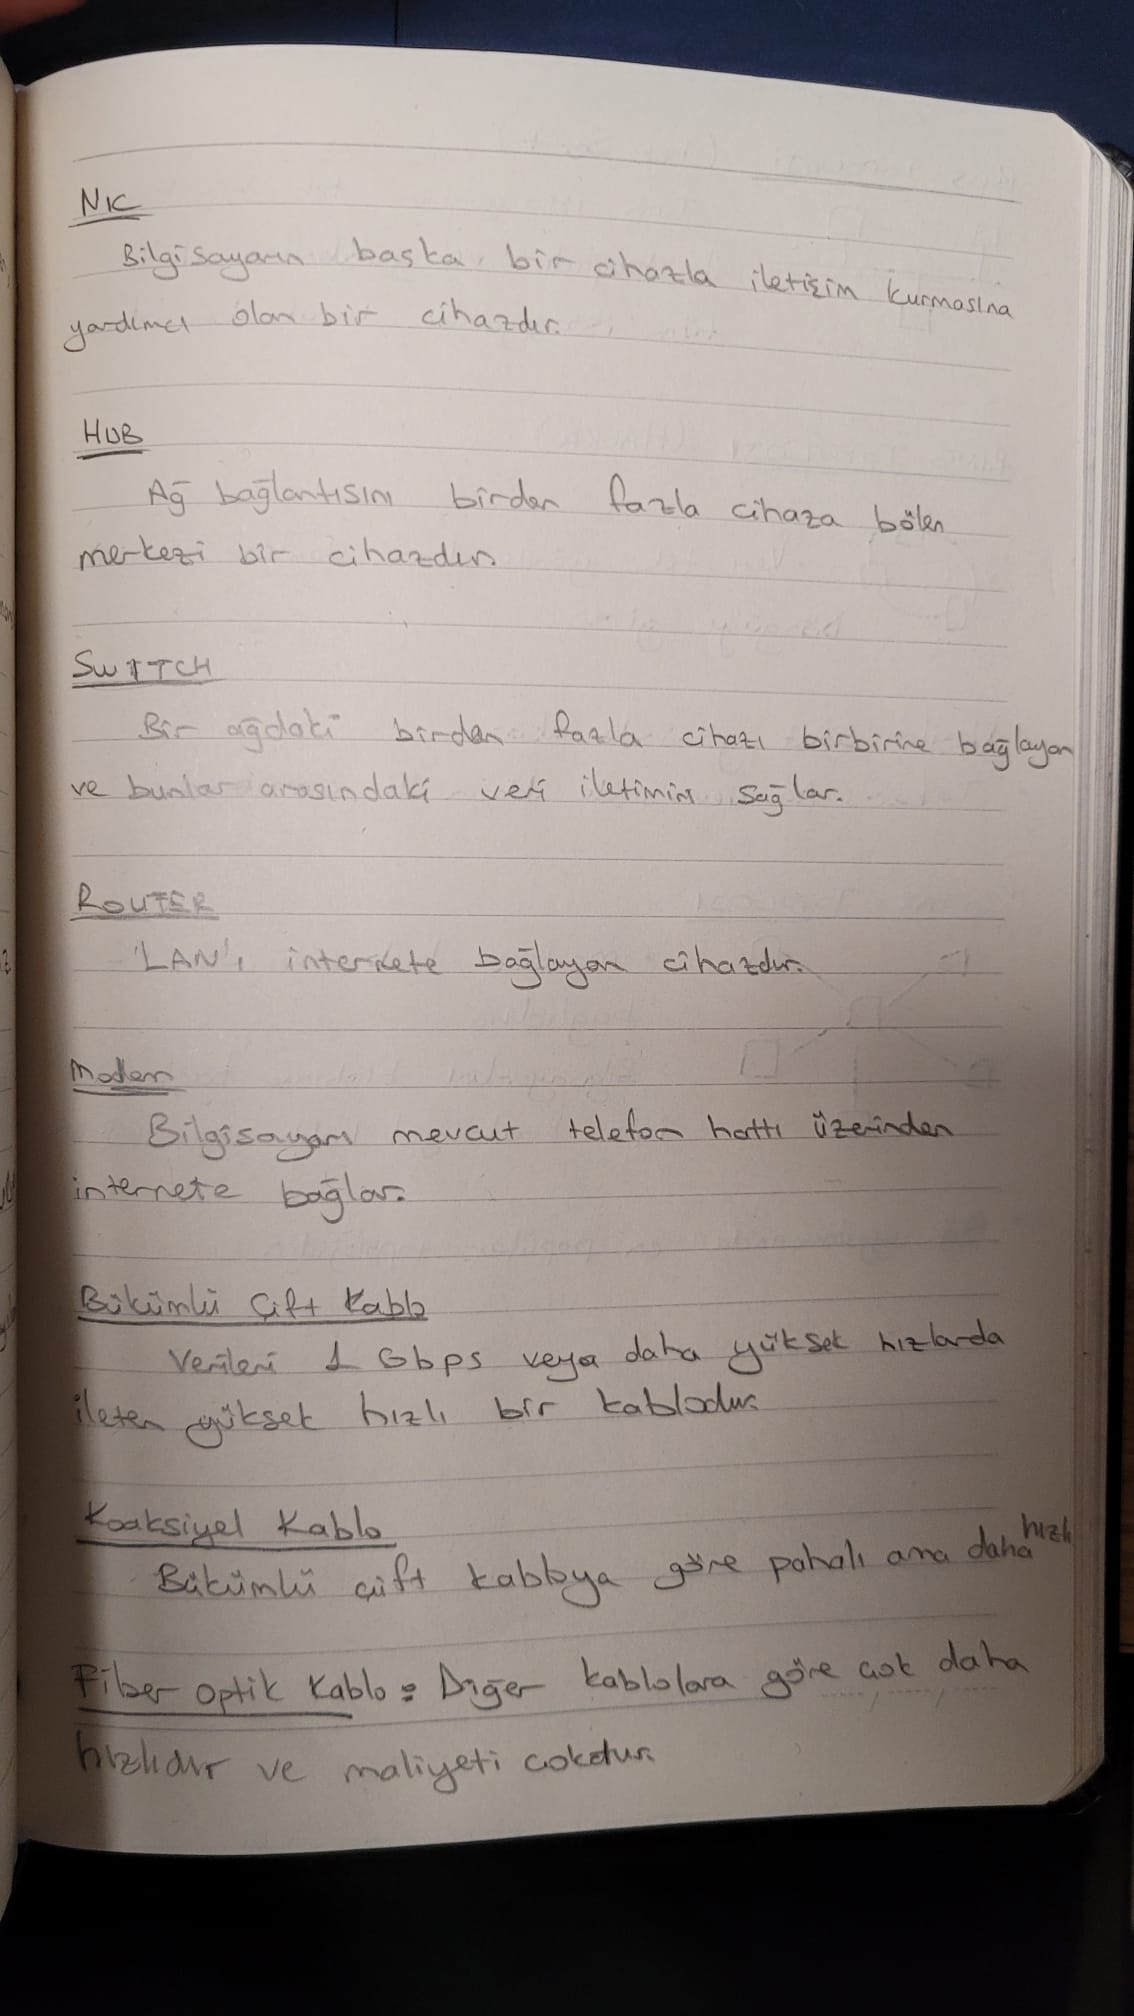 NIC
Bilgisayarın başka bir cihazla iletişim kurmasına
yardımcı olan bir cihazdır.
HUB
Ağ bağlantısını birden fazla cihaza bölen
merkezi bir cihazdır.
SWITCH
Bir ağdaki birden fazla cihazı birbirine bağlayan
ve bunlar arasındaki veri iletimini sağlar.
ROUTER
'LAN'ı internete bağlayan cihazdır.
Modem
Bilgisayarı mevcut telefon hattı üzerinden
internete bağlar.
Bükümlü Çift Kablo
Verileri 1 Gbps veya daha yüksek hızlarda
ileten yüksek hızlı bir kablodur.
Koaksiyel Kablo
Bükümlü çift kabloya göre pahalı ama daha hızlı
Fiber optik Kablo: Diğer kablolara göre çok daha
hızlıdır ve maliyeti çoktur.